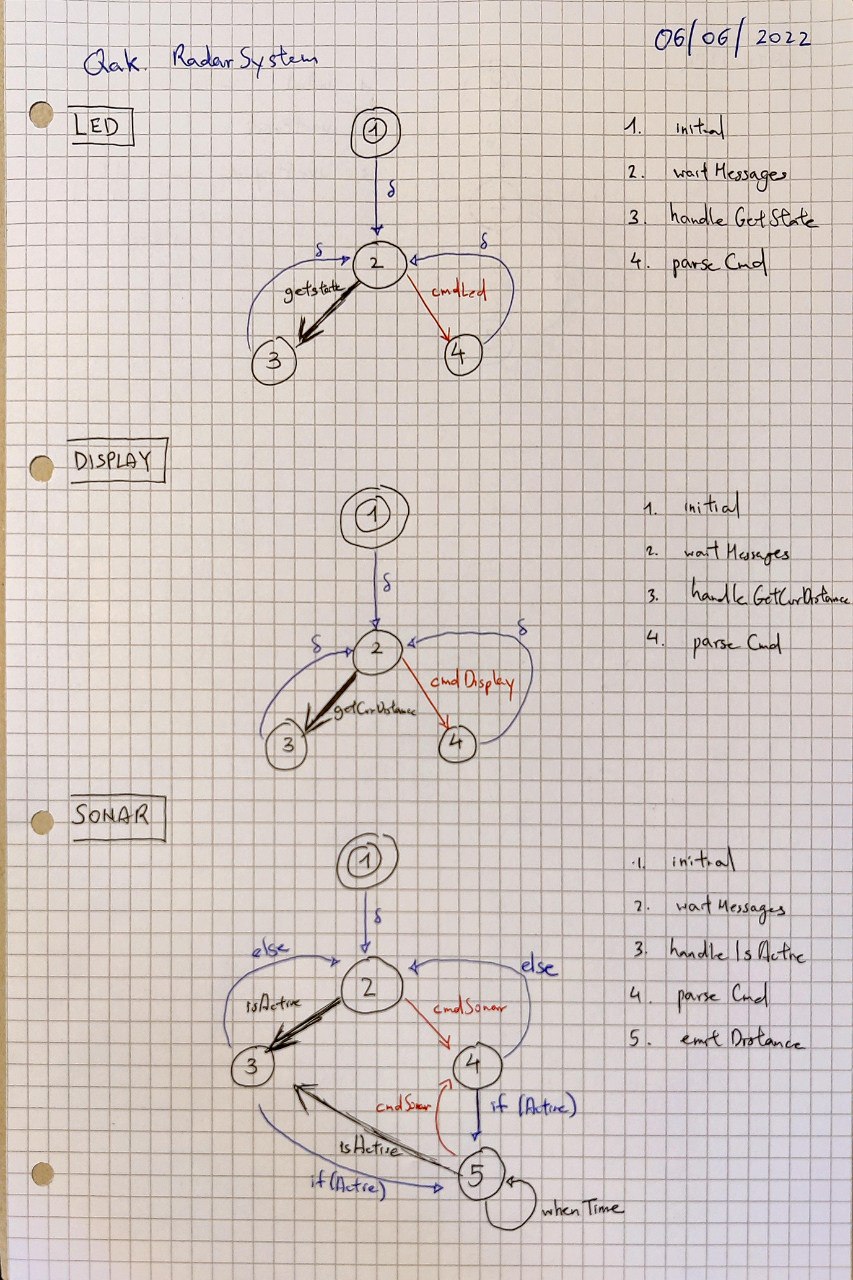 06/06/2022
Qak. RadarSystem
LED
1
δ
2
δ
δ
getstate
cmdLed
3
4
1. initial
2. wait Messages
3. handle GetState
4. parse Cmd
DISPLAY
1
δ
2
δ
δ
cmdDisplay
getCurDistance
3
4
1. initial
2. wait Messages
3. handle GetCurDistance
4. parse Cmd
SONAR
1
δ
else
else
2
isActive
cmdSonar
3
4
cmdSonar
if (Active)
isActive
if (Active)
5
when Time
1. initial
2. wait Messages
3. handle Is Active
4. parse Cmd
5. emit Distance